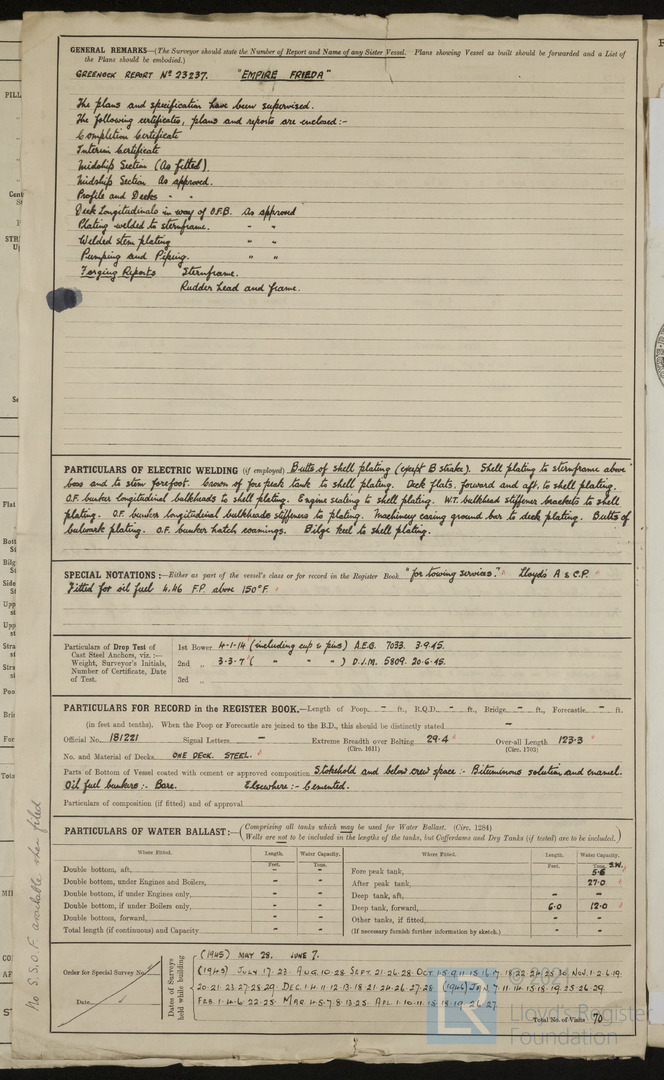 GENERAL REMARKS—(The Surveyor should state the Number of Report and Name of any Sister Vessel. Plans showing Vessel as built should be forwarded and a List of
the Plans should be embodied.)
GREENOCK REPORT No 23237. "EMPIRE FRIEDA"
The plans and specification have been supervised.
The following certificates, plans and reports are enclosed:-
Completion Certificate
Interim Certificate
Midship Section (As fitted)
Midship Section As approved.
Profile and Decks " "
Deck Longitudinals in way of O.F.B. As approved
Plating welded to sternframe. " "
Welded stem plating " "
Pumping and Piping. " "
Forging Reports Sternframe.
Rudder head and frame.
PARTICULARS OF ELECTRIC WELDING (if employed) Butts of shell plating (except B strake). Shell plating to sternframe above
boss and to stem forefoot. Crown of fore peak tank to shell plating. Deck flats, forward and aft, to shell plating.
O.F. bunker longitudinal bulkheads to shell plating. Engine seating to shell plating. W.T. bulkhead stiffener brackets to shell
plating. O.F. bunker longitudinal bulkheads stiffeners to plating. Machinery casing ground bar to deck plating. Butts of
bulwark plating. O.F. bunker hatch coamings. Bilge keel to shell plating.
SPECIAL NOTATIONS:—Either as part of the vessel's class or for record in the Register Book "for towing services." Lloyd's A & C.P.
Fitted for oil fuel 4.46 F.P. above 150°F.
Particulars of Drop Test of
Cast Steel Anchors, viz.:—
Weight, Surveyor's Initials,
Number of Certificate, Date
of Test.
1st Bower 4-1-14 (including cup & pins) A.E.G. 7033. 3.9.45.
2nd „ 3-3-7 ( " " " ) D.J.M. 5809. 20.6.45.
3rd „
PARTICULARS FOR RECORD in the REGISTER BOOK.—Length of Poop - ft., R.Q.D. - ft., Bridge - ft., Forecastle - ft.
(in feet and tenths). When the Poop or Forecastle are joined to the B.D., this should be distinctly stated —
Official No. 181221 Signal Letters — Extreme Breadth over Belting 29.4 Over-all Length 123.3
(Circ. 1611) (Circ. 1703)
No. and Material of Decks ONE DECK. STEEL.
Parts of Bottom of Vessel coated with cement or approved composition Stokehold and below crew space:- Bituminous solution and enamel.
Oil fuel bunkers:- Bare. Elsewhere:- Cemented.
Particulars of composition (if fitted) and of approval
PARTICULARS OF WATER BALLAST:—(Comprising all tanks which may be used for Water Ballast. (Circ. 1284)
Wells are not to be included in the lengths of the tanks, but Cofferdams and Dry Tanks (if tested) are to be included.)
Where Fitted. Length. Water Capacity. Where Fitted. Length. Water Capacity.
Feet. Tons. Feet. Tons. S.W.
Double bottom, aft, - - Fore peak tank, 5.6
Double bottom, under Engines and Boilers, - - After peak tank, 27.0
Double bottom, if under Engines only, - - Deep tank, aft, - -
Double bottom, if under Boilers only, - - Deep tank, forward, 6.0 12.0
Double bottom, forward, - - Other tanks, if fitted, - -
Total length (if continuous) and Capacity - - (If necessary furnish further information by sketch.)
Order for Special Survey No.
Date
Dates of Surveys
held while building
(1945) MAY 28. JUNE 7.
(1945) JULY 17.23. AUG.10.28. SEPT.21.26.28. OCT.1.5.9.11.15.16.17.18.22.24.25.30. NOV.1.2.6.19.
20.21.23.27.28.29. DEC.1.4.11.12.13.18.21.24.26.27.28. (1946) JAN 7.11.14.15.18.19.25.26.29.
FEB.1.4.6.22.25. MAR.4.5.7.8.13.25. APL.1.10.11.15.18.19.26.27.
Total No. of Visits 70
No S.S.O.F. available when filed
Lloyd's Register
Foundation